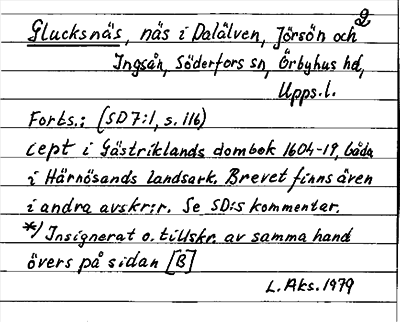 2
Glucksnäs, näs i Dalälven, Jörsön och
Ingsån, Söderfors sn, Örbyhus hd,
Upps.l.
Forts.: (SD7:1, s. 116)
cept i Gästriklands dombok 1604-19, båda
i Härnösands landsark. Brevet finns även
i andra avskr:r. Se SD:s kommentar.
*) Insignerat o. tillskr. av samma hand
övers på sidan [B]
L. Aks. 1979